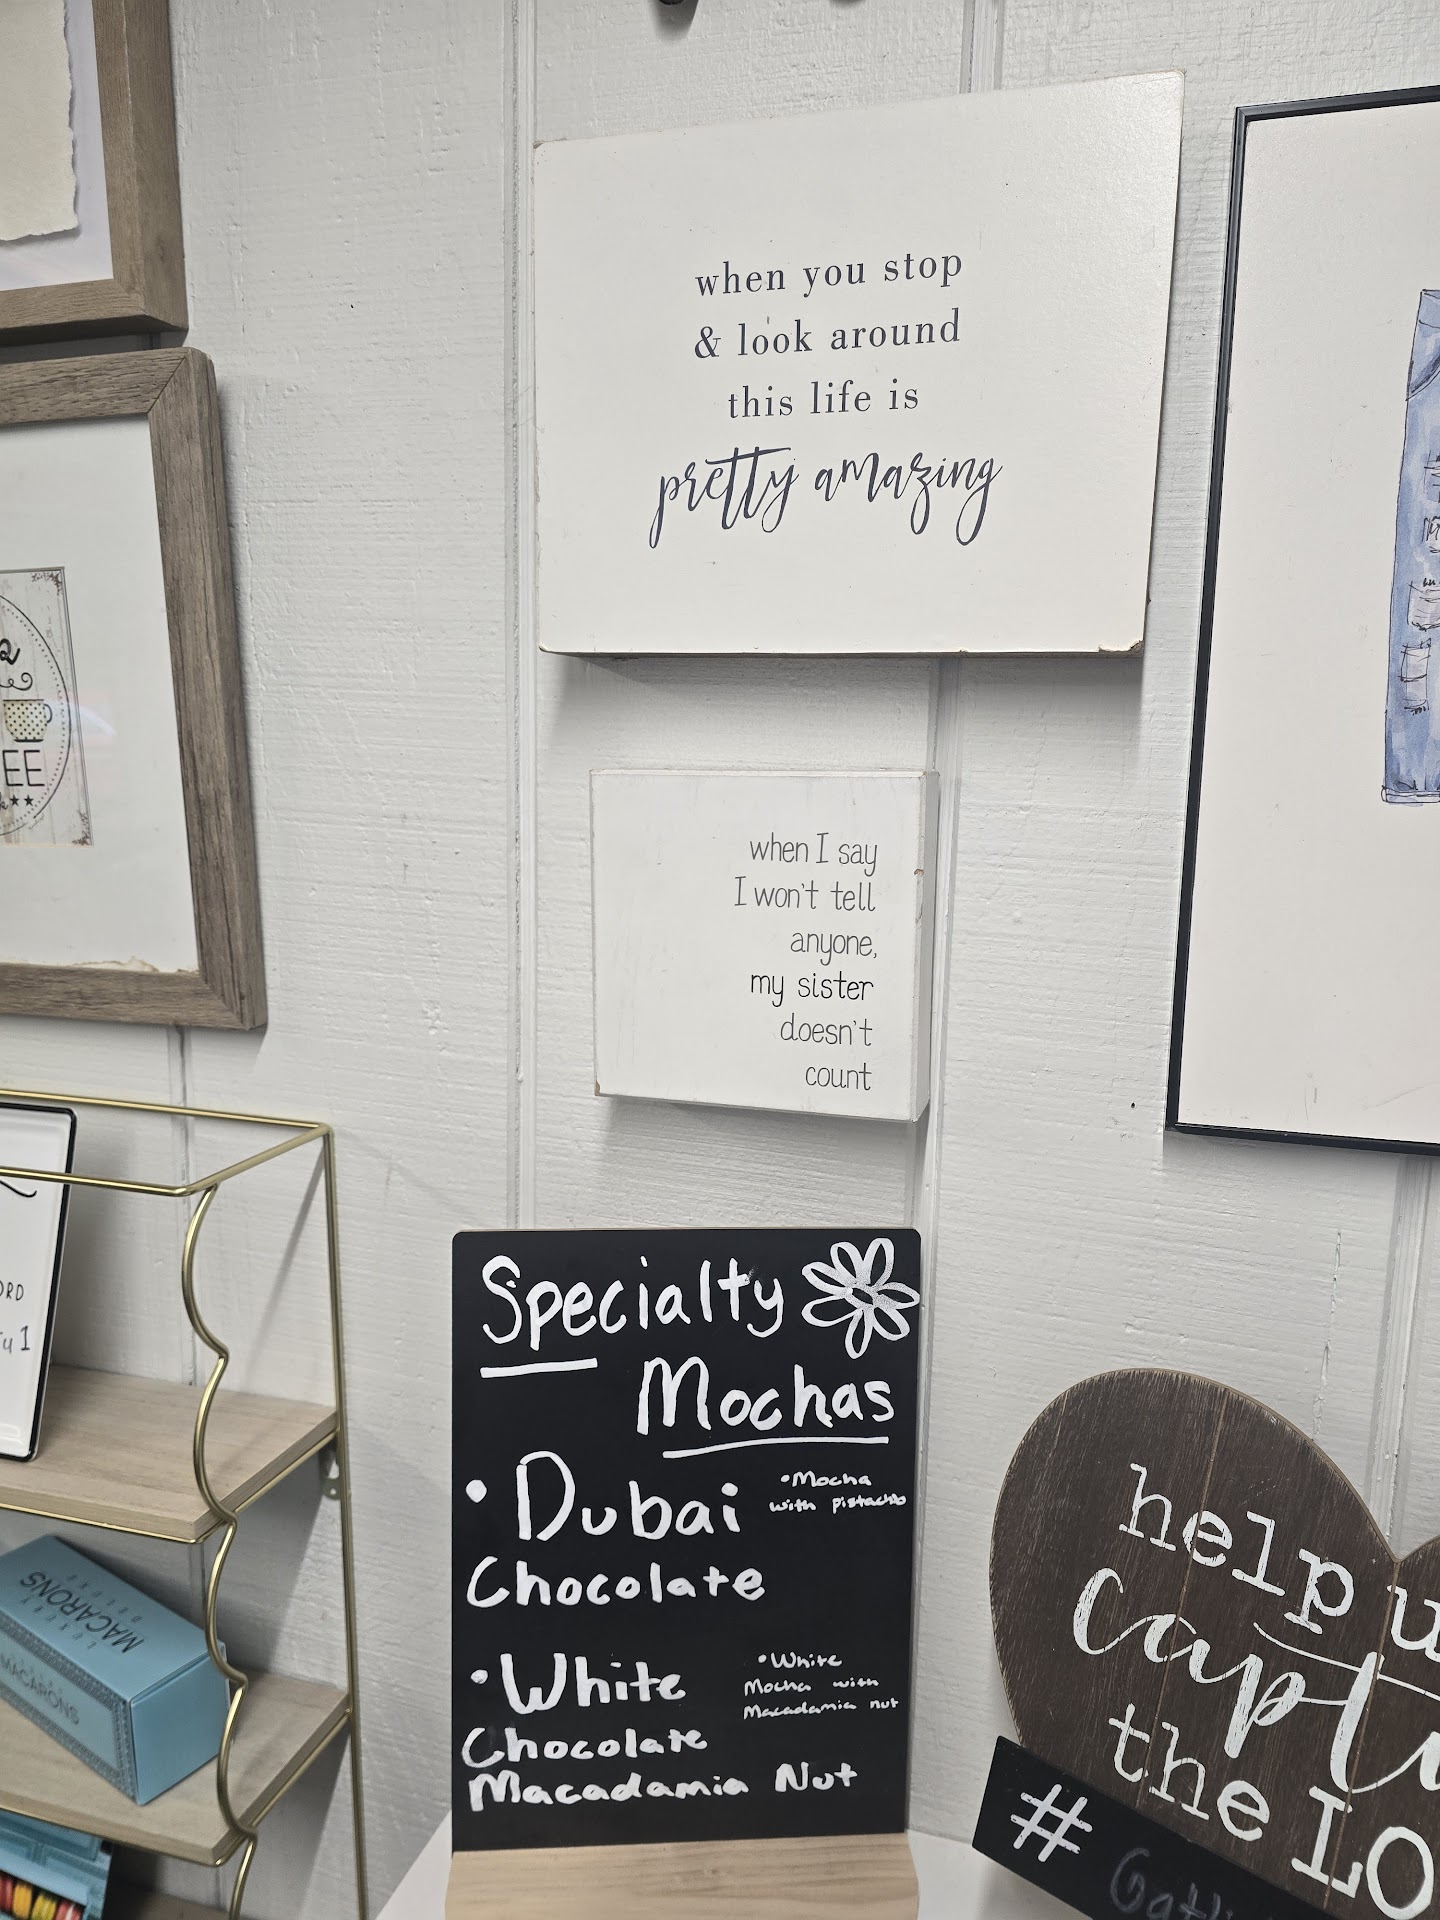 when you stop
& look around
this life is
pretty amazing
when I say
I won't tell
anyone,
my sister
doesn't
count
Specialty
Mochas
•Dubai
Chocolate
•Mocha
with pistachio
•White
Chocolate
Macadamia Nut
•White
Mocha with
Macadamia nut
help
the LO
#
MACARONS
MACARONS
EE
ORD